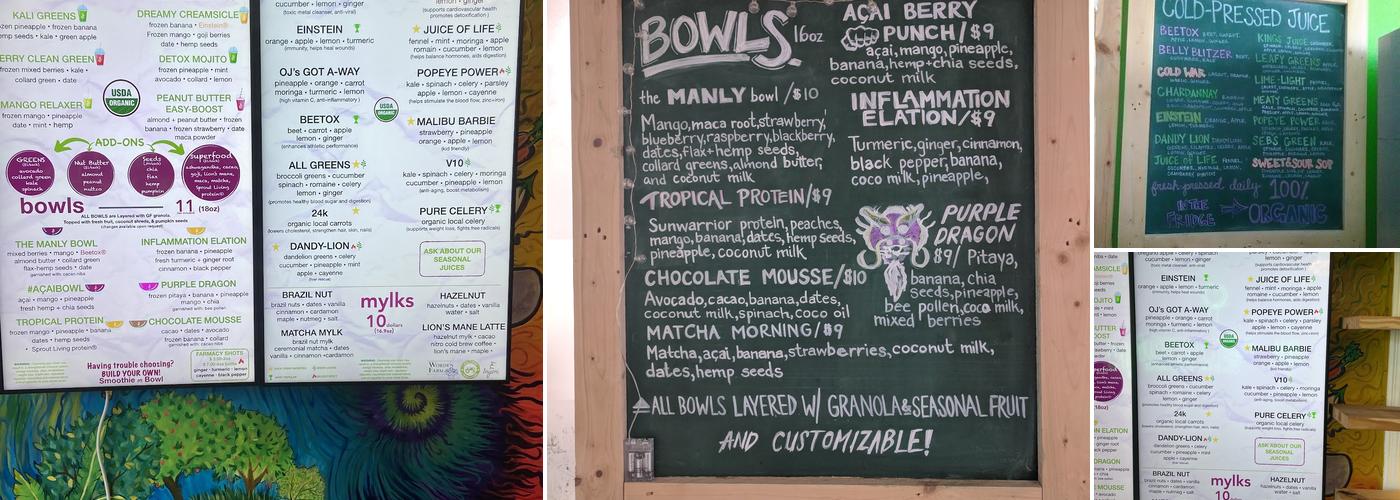 KALI GREENS
pineapple • frozen banana
seeds • kale • green apple
DREAMY CREAMSICLE
frozen banana • Einstein®
Frozen mango • goji berries
date • hemp seeds
BERRY CLEAN GREEN
frozen mixed berries • kale •
collard green • date
DETOX MOJITO
frozen pineapple • mint
avocado • collard • lemon
USDA
ORGANIC
MANGO RELAXER
frozen mango • pineapple
date • mint • hemp
PEANUT BUTTER
EASY-BOOST
almond + peanut butter • frozen
banana • frozen strawberry • date
maca powder
ADD-ONS
GREENS
avocado
collard green
kale
spinach
Nut Butter
almond
peanut
nutzo
Seeds
chia
flax
hemp
pumpkin
superfood
ashwagandha, cacao,
goji, lion's mane,
maca, matcha,
Sprout Living
protein®
bowls
11 (18oz)
ALL BOWLS are Layered with GF granola.
Topped with fresh fruit, coconut shreds, & pumpkin seeds
(changes available upon request)
THE MANLY BOWL
mixed berries • mango • Beetox®
almond butter • collard green
flax-hemp seeds • date
garnished with cacao nibs
INFLAMMATION ELATION
frozen banana • pineapple
fresh turmeric + ginger root
cinnamon • black pepper
#AÇAIBOWL
açai • mango • pineapple
fresh hemp • chia seeds
PURPLE DRAGON
frozen pitaya • banana • pineapple
mango • chia
TROPICAL PROTEIN
frozen mango • banana • pineapple
dates • hemp seeds
• Sprout Living protein®
CHOCOLATE MOUSSE
cacao • dates • avocado
frozen banana • collard
garnished with: cacao nibs
Having trouble choosing?
BUILD YOUR OWN!
Smoothie or Bowl
FARMACY SHOTS
ginger • turmeric • lemon
cayenne • black pepper
cucumber • lemon • ginger
(toxic metal cleanser, anti-viral)
EINSTEIN
orange • apple • lemon • turmeric
(immunity, helps heal wounds)
OJ's GOT A-WAY
pineapple • orange • carrot
moringa • turmeric • lemon
(high vitamin C, anti-inflammatory)
BEETOX
beet • carrot • apple
lemon • ginger
ALL GREENS
broccoli greens • cucumber
spinach • romaine • celery
lemon • ginger
(promotes healthy blood sugar and digestion)
24k
organic local carrots
DANDY-LION
dandelion greens • celery
cucumber • pineapple • mint
apple • cayenne
(liver rescue)
(supports cardiovascular health
promotes detoxification)
JUICE OF LIFE
fennel • mint • moringa • apple
romain • cucumber • lemon
(helps balance hormones, aids digestion)
POPEYE POWER
kale • spinach • celery • parsley
apple • lemon • cayenne
(helps stimulate the blood flow, zinc+iron)
USDA
ORGANIC
MALIBU BARBIE
strawberry • pineapple
orange • apple • lemon
(kid friendly)
V10
kale • spinach • celery • carrot
romaine • cucumber • lemon
(anti-aging, boost metabolism)
PURE CELERY
organic local celery
(supports weight loss, fights free radicals)
ASK ABOUT OUR
SEASONAL
JUICES
BRAZIL NUT
brazil nuts • dates • vanilla
cinnamon • cardamon
maple • nutmeg • salt
mylks
10 dollars
(16.9oz)
HAZELNUT
hazelnuts • dates • vanilla
water • salt
MATCHA MYLK
brazil nut mylk
ceremonial matcha • dates
vanilla • cinnamon •cardamon
LION'S MANE LATTE
hazelnut mylk • cacao
nitro cold brew coffee •
lion's mane • maple •
BOWLS. 16oz
the MANLY bowl /$10
Mango, maca root, strawberry,
blueberry, raspberry, blackberry,
dates, flax+hemp seeds,
collard greens, almond butter,
and coconut milk
TROPICAL PROTEIN/$9
Sunwarrior protein, peaches,
mango, banana, dates, hemp seeds,
pineapple, coconut milk
CHOCOLATE MOUSSE/$10
Avocado, cacao, banana, dates,
coconut milk, spinach, coco oil
MATCHA MORNING/$9
Matcha, açai, banana, strawberries, coconut milk,
dates, hemp seeds
AÇAI BERRY
PUNCH/$9
açai, mango, pineapple,
banana, hemp+chia seeds,
coconut milk
INFLAMMATION
ELATION/$9
Turmeric, ginger, cinnamon,
black pepper, banana,
coco milk, pineapple,
PURPLE
DRAGON
$9/ Pitaya,
banana, chia
seeds, pineapple,
bee pollen, coco milk,
mixed berries
ALL BOWLS LAYERED W/ GRANOLA & SEASONAL FRUIT
AND CUSTOMIZABLE!
COLD-PRESSED JUICE
BEETOX
BELLY BLITZER
COLD WAR
CHARDANNAY
EINSTEIN
DANDY LION
JUICE OF LIFE
KINGS JUICE
LEAFY GREENS
LIME-LIGHT
MEATY GREENS
POPEYE POWER
SEB'S GREEN
SWEET&SOUR SOP
fresh-pressed daily 100%
IN THE
FRIDGE
ORGANIC
EINSTEIN
orange • apple • lemon • turmeric
OJ's GOT A-WAY
pineapple • orange • carrot
moringa • turmeric • lemon
BEETOX
beet • carrot • apple
lemon • ginger
ALL GREENS
broccoli greens • cucumber
spinach • romaine • celery
lemon • ginger
24k
organic local carrots
DANDY-LION
dandelion greens • celery
cucumber • pineapple • mint
apple • cayenne
JUICE OF LIFE
fennel • mint • moringa • apple
romaine • cucumber • lemon
POPEYE POWER
kale • spinach • celery • parsley
apple • lemon • cayenne
MALIBU BARBIE
strawberry • pineapple
orange • apple • lemon
V10
kale • spinach • celery • carrot
romaine • cucumber • lemon
PURE CELERY
organic local celery
ASK ABOUT OUR
SEASONAL
JUICES
BRAZIL NUT
brazil nuts • dates • vanilla
cinnamon • cardamon
maple • nutmeg • salt
mylks
10
HAZELNUT
hazelnuts • dates • vanilla
water • salt